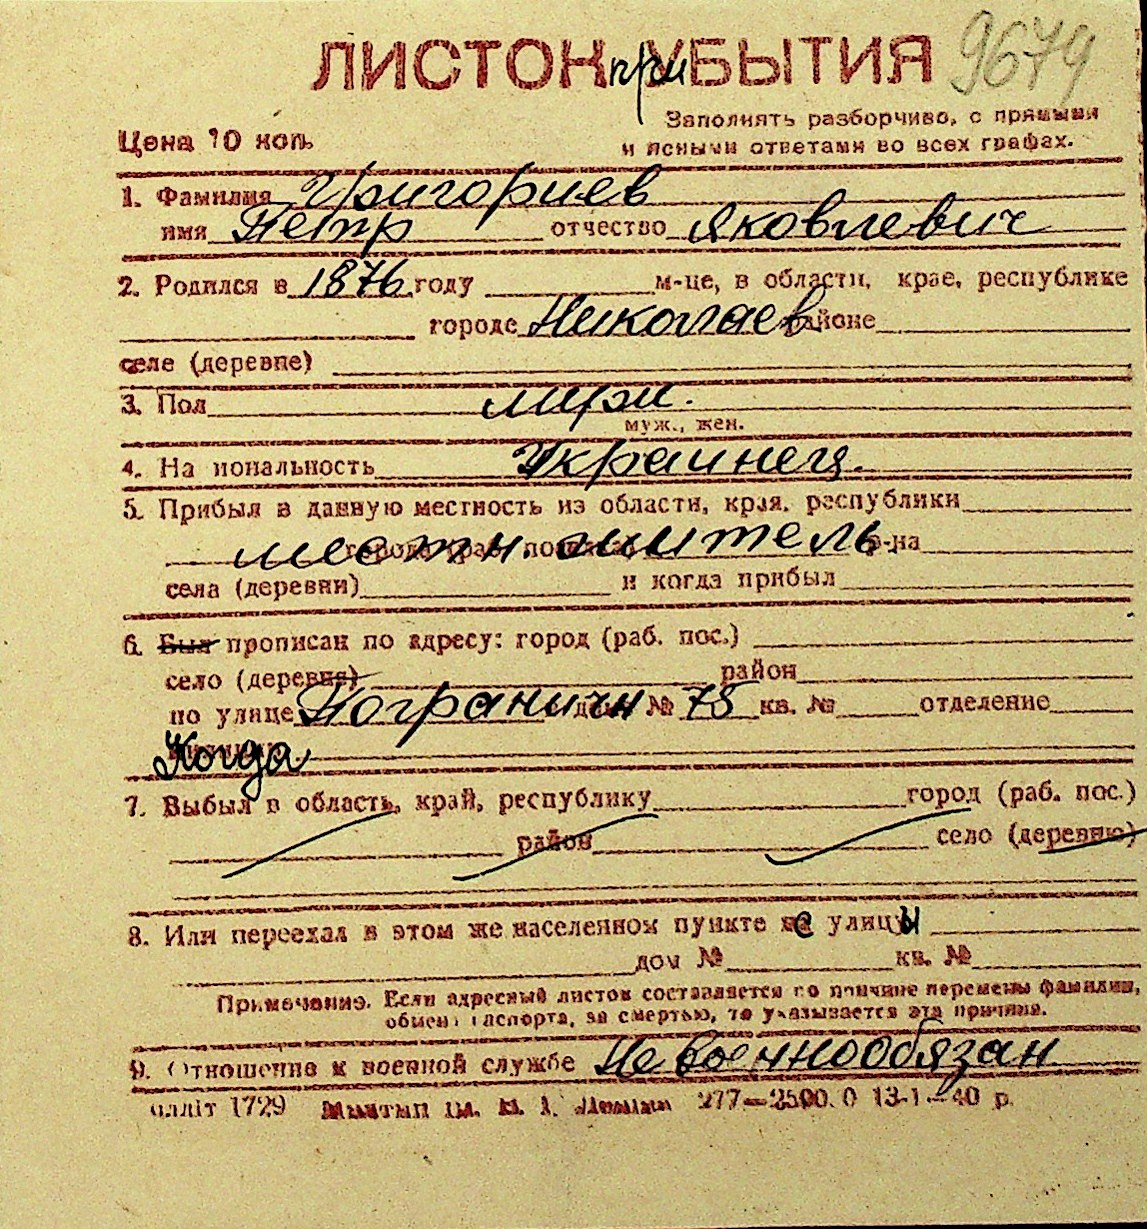 ЛИСТОК при УБЫТИЯ 9679
Цена 10 коп.
Заполнять разборчиво, с прямыми
и ясными ответами во всех графах.
1. Фамилия Григориев
имя Петр отчество Яковлевич
2. Родился в 1876 году м-це, в области, крае, республике
городе Николаев районе
селе (деревне)
3. Пол муж.
муж., жен.
4. На иональность Украинец.
5. Прибыл в данную местность из области, края, республики
местн. житель р-на
села (деревни) и когда прибыл
6. Был прописан по адресу: город (раб. пос.)
село (деревня) район
по улице Погранични дом № 75 кв. № отделение
Когда
7. Выбыл в область, край, республику город (раб. пос.)
район село (деревню)
8. Или переехал в этом же населенном пункте с улицы
дом № кв. №
Примечание. Если адресный листок составляется по причине перемены фамилии,
обмен паспорта, за смертью, то указывается эта причина.
9. Отношение к военной службе Невоеннообязан
лліт 1729 277—2500.0 13-1.—40 р.